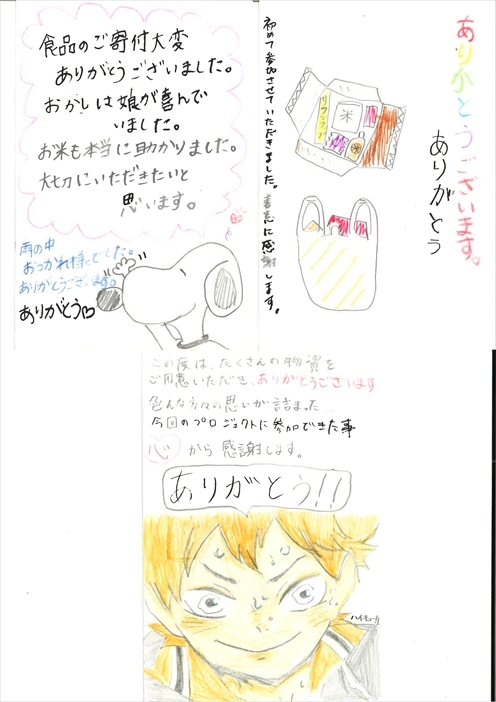 食品のご寄付大変
ありがとうございました。
おかしは娘が喜んで
いました。
お米も本当に助かりました。
大切にいただきたいと
思います。
雨の中
おつかれ様でした。
ありがとうございます。
ありがとう♡
ありがとうございます。
ありがとう
初めて参加させていただきました。善意に感謝します。
米
この度は、たくさんの物資を
ご用意いただき、ありがとうございます
色んな方々の思いが詰まった…
今回のプロジェクトに参加できた事
心から感謝します。
ありがとう!!